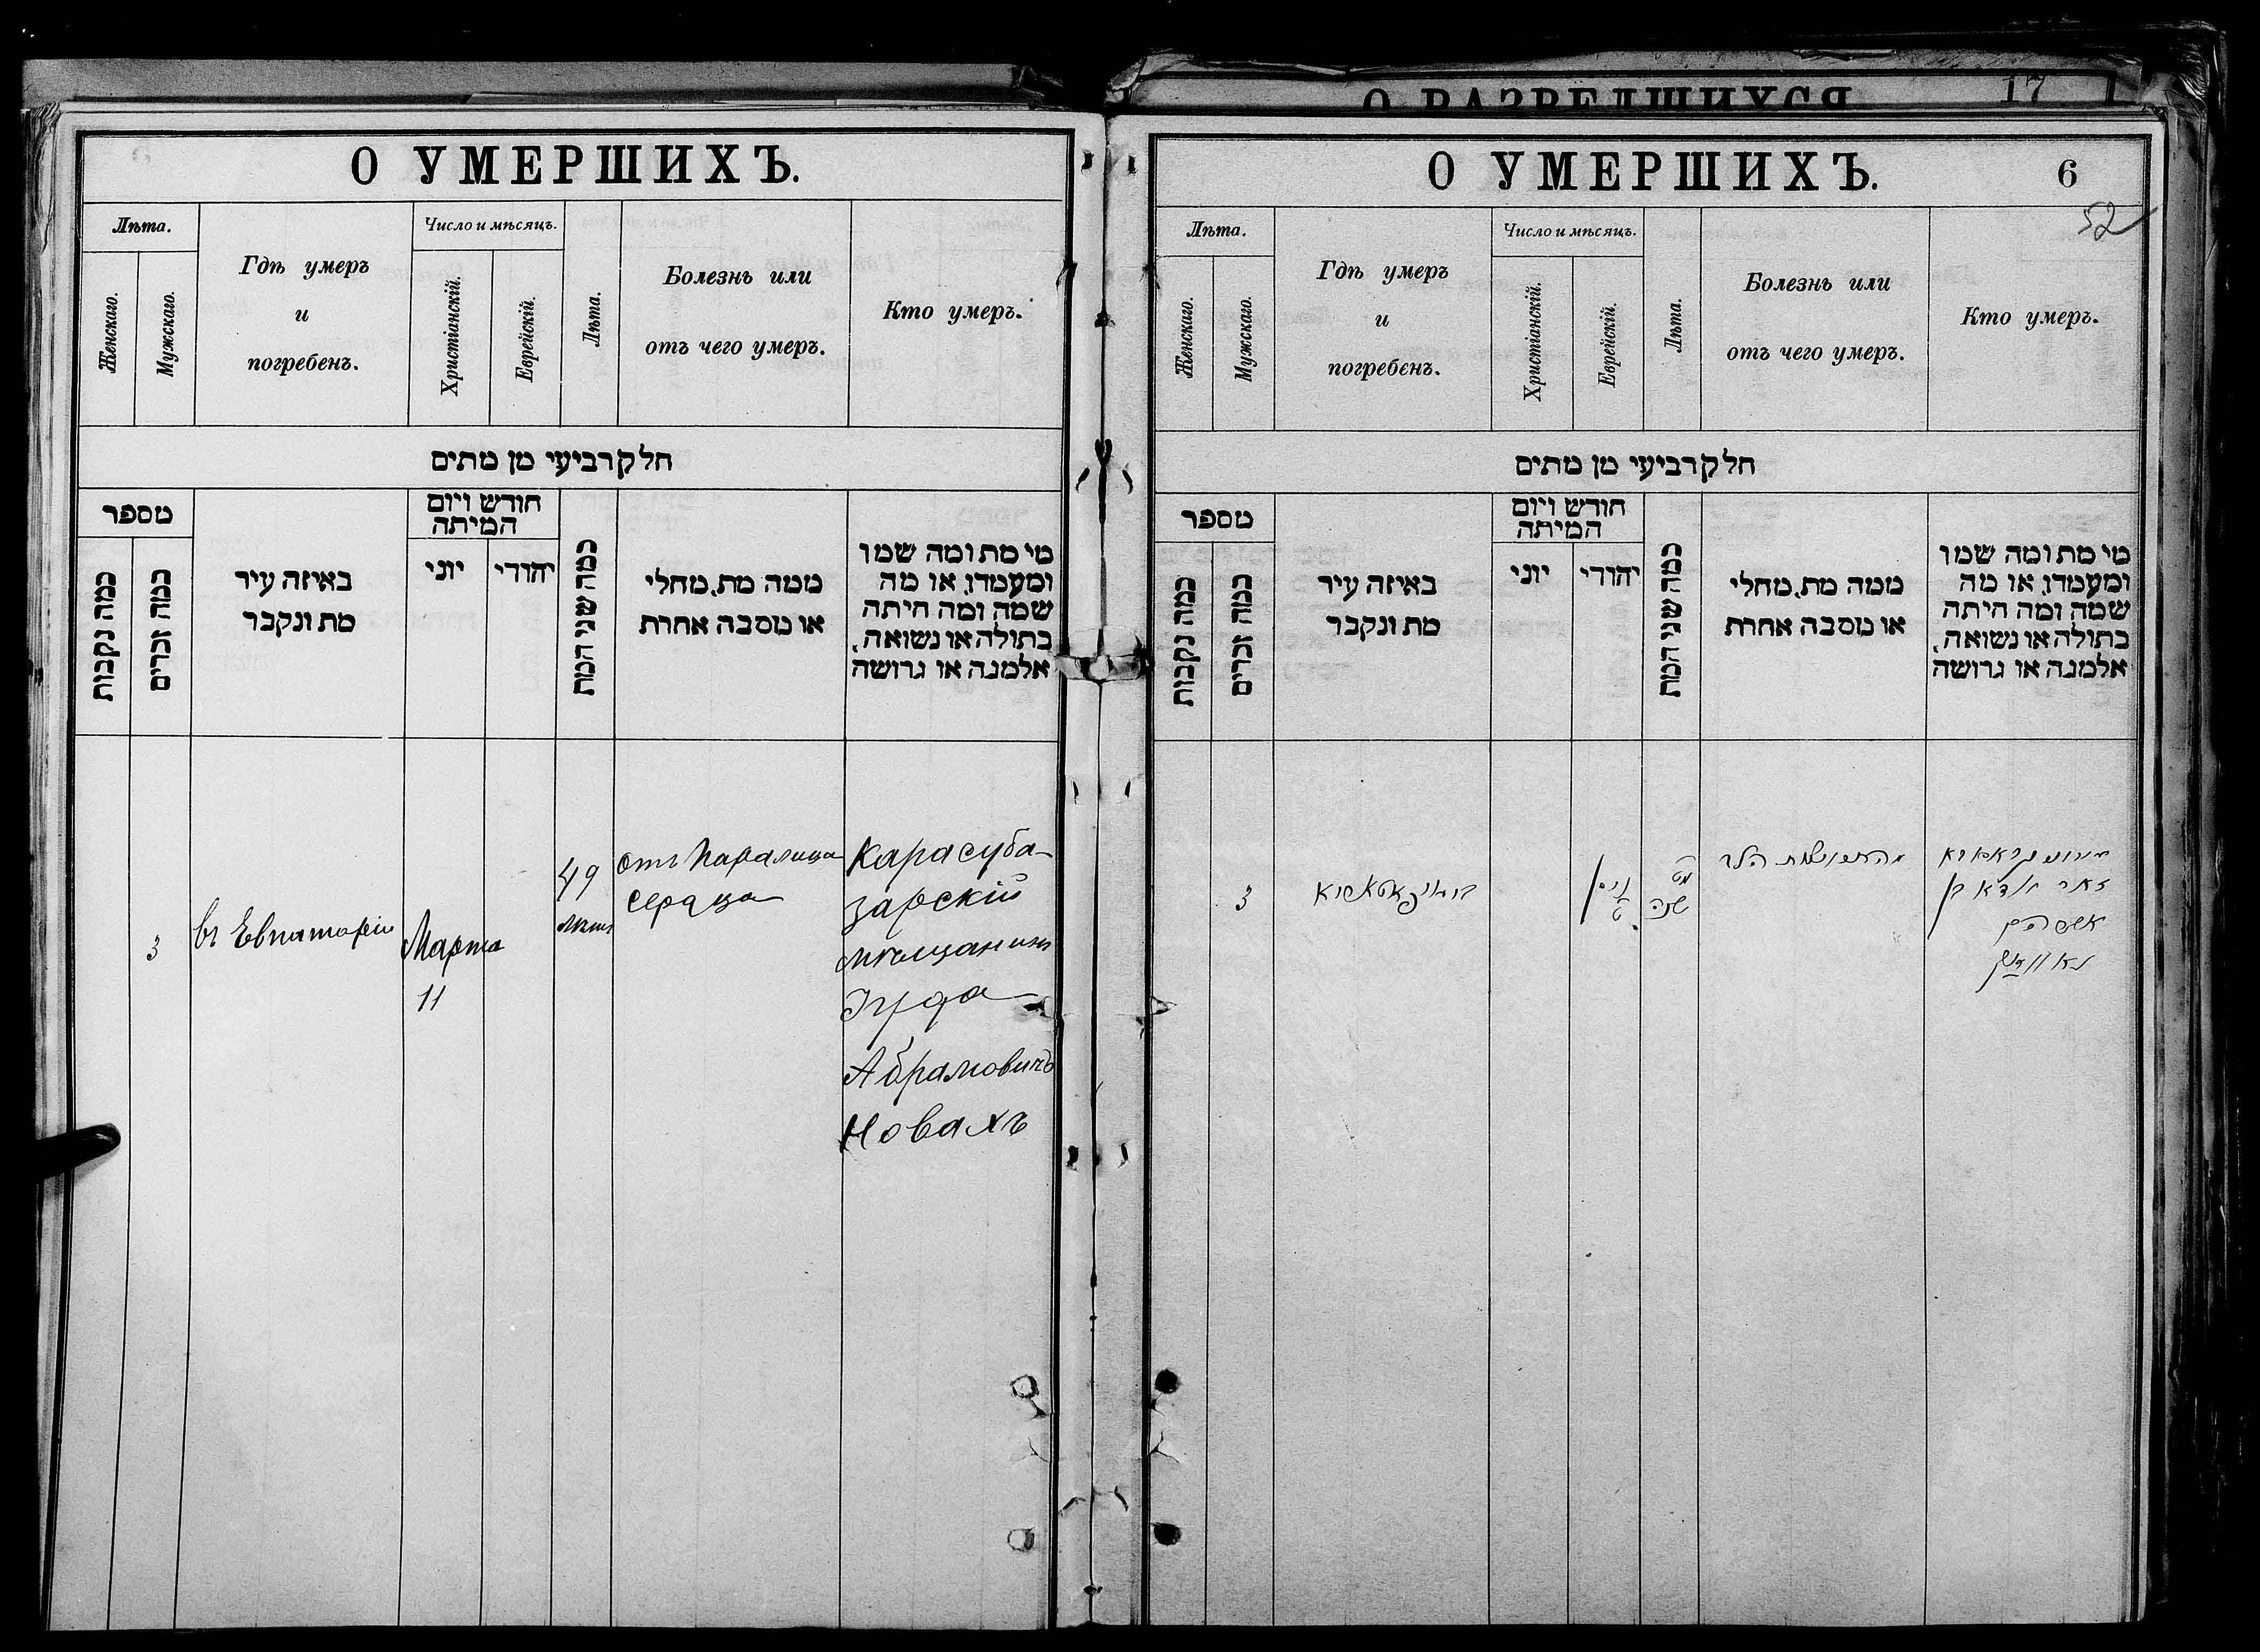 О РАЗВЕДШИХСЯ
17
О УМЕРШИХЪ.
Лѣта.
Женскаго.
Мужскаго.
Гдѣ умеръ
и
погребенъ.
Число и мѣсяцъ.
Христіанскій.
Еврейскій.
Лѣта.
Болезнь или
отъ чего умеръ.
Кто умеръ.
חלק רביעי מן מתים
מספר
כמה נקבות
כמה זכרים
באיזה עיר
מת ונקבר
חודש ויום
המיתה
יוני
יהודי
כמה שני המת
ממה מת, מחלי
או מסבה אחרת
מי מת ומה שמו
ומעמדו, או מה
שמה ומה היתה
בתולה או נשואה,
אלמנה או גרושה
3
въ Евпаторіи
Марта
11
49
лѣтъ
отъ паралича
сердца
Карасуба-
зарскій
мѣщанинъ
Іуда
Абрамовичъ
Новахъ
О УМЕРШИХЪ.
6
52
Лѣта.
Женскаго.
Мужскаго.
Гдѣ умеръ
и
погребенъ.
Число и мѣсяцъ.
Христіанскій.
Еврейскій.
Лѣта.
Болезнь или
отъ чего умеръ.
Кто умеръ.
חלק רביעי מן מתים
מספר
כמה נקבות
כמה זכרים
באיזה עיר
מת ונקבר
חודש ויום
המיתה
יוני
יהודי
כמה שני המת
ממה מת, מחלי
או מסבה אחרת
מי מת ומה שמו
ומעמדו, או מה
שמה ומה היתה
בתולה או נשואה,
אלמנה או גרושה
3
ניסן
מט
שנה